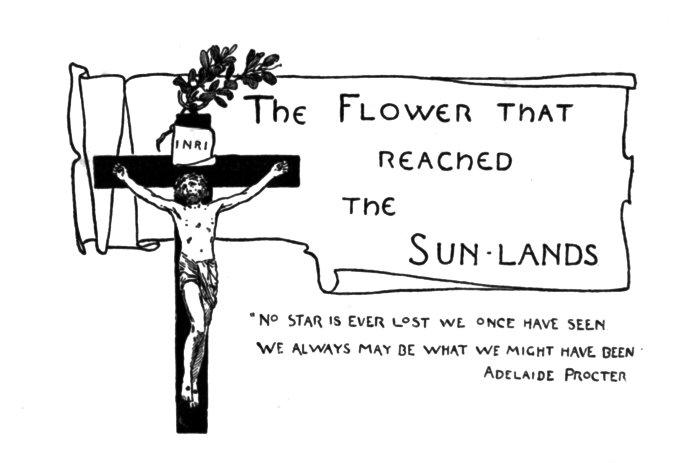 INRI
The Flower that
reached
the
Sun-lands
"No star is ever lost we once have seen
We always may be what we might have been.
Adelaide Procter